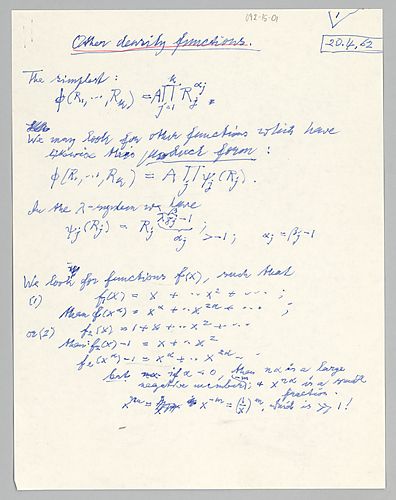 092-15-01
Other density functions.
20.4.62
The simplest:
ϕ(R₁, ..., R_k) = A ∏_{j=1}^{k} R_j^{α_j}.
We may look for other functions which have
likewise this product form:
ϕ(R₁, ..., R_k) = A ∏_j ψ_j(R_j).
In the λ-system we have
ψ_j(R_j) = R_j ; > -1 ; α_j =
We look for functions f(x), such that
(1) f₁(x) = x + ·· x² + ··· ;
then f₁(x^α) = x^α + ·· x^{2α} + ··· ;
or (2) f₂(x) = 1 + x + ·· x² + ···
then f₂(x) - 1 = x + ·· x² + ··
f₂(x^α) - 1 = x^α + ·· x^{2α} ··
but if α < 0, then nα is a large
negative number; & x^{nα} is a small
fraction.
x^{-m} = (1/x)^m, but is ≫ 1!